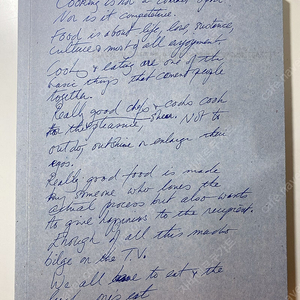 Cooking is not a combat sport
Nor is it competitive.
Food is about life, love, sustenance,
Culture & most of all enjoyment.
Cooking & eating are one of the
basic things that cement people
together.
Really good chefs & cooks cook
for the pleasure, Not to
outdo, outshine or enlarge their
egos.
Really good food is made
by someone who loves the
actual process but also wants
to give happiness to the recipient.
Enough of all this macho
bilge on the T.V.
We all have to eat & the